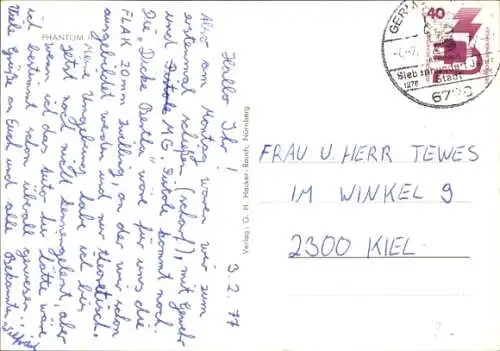 PHANTOM
3.2.77
Hallo Ihr!
Also am Montag waren wir zum
erstenmal schießen (scharf), mit Gewehr
und MG. Pistole kommt noch.
Die "Dicke Bertha" wäre für uns die
FLAK 20mm Zwilling, an der wir schon
ausgebildet werden und nur theoretisch.
Meine Umgebung habe ich bis
jetzt noch nicht kennengelernt, aber
wenn ich das Auto hier hätte wäre
ich bestimmt schon überall gewesen.
Viele Grüße an Euch und alle
Bekannte,
Verlag: O. H. Hacker-Rauch, Nürnberg
40
GER
Siebenhundert J
Stadt
1276
672
FRAU U. HERR TEWES
IM WINKEL 9
2300 KIEL